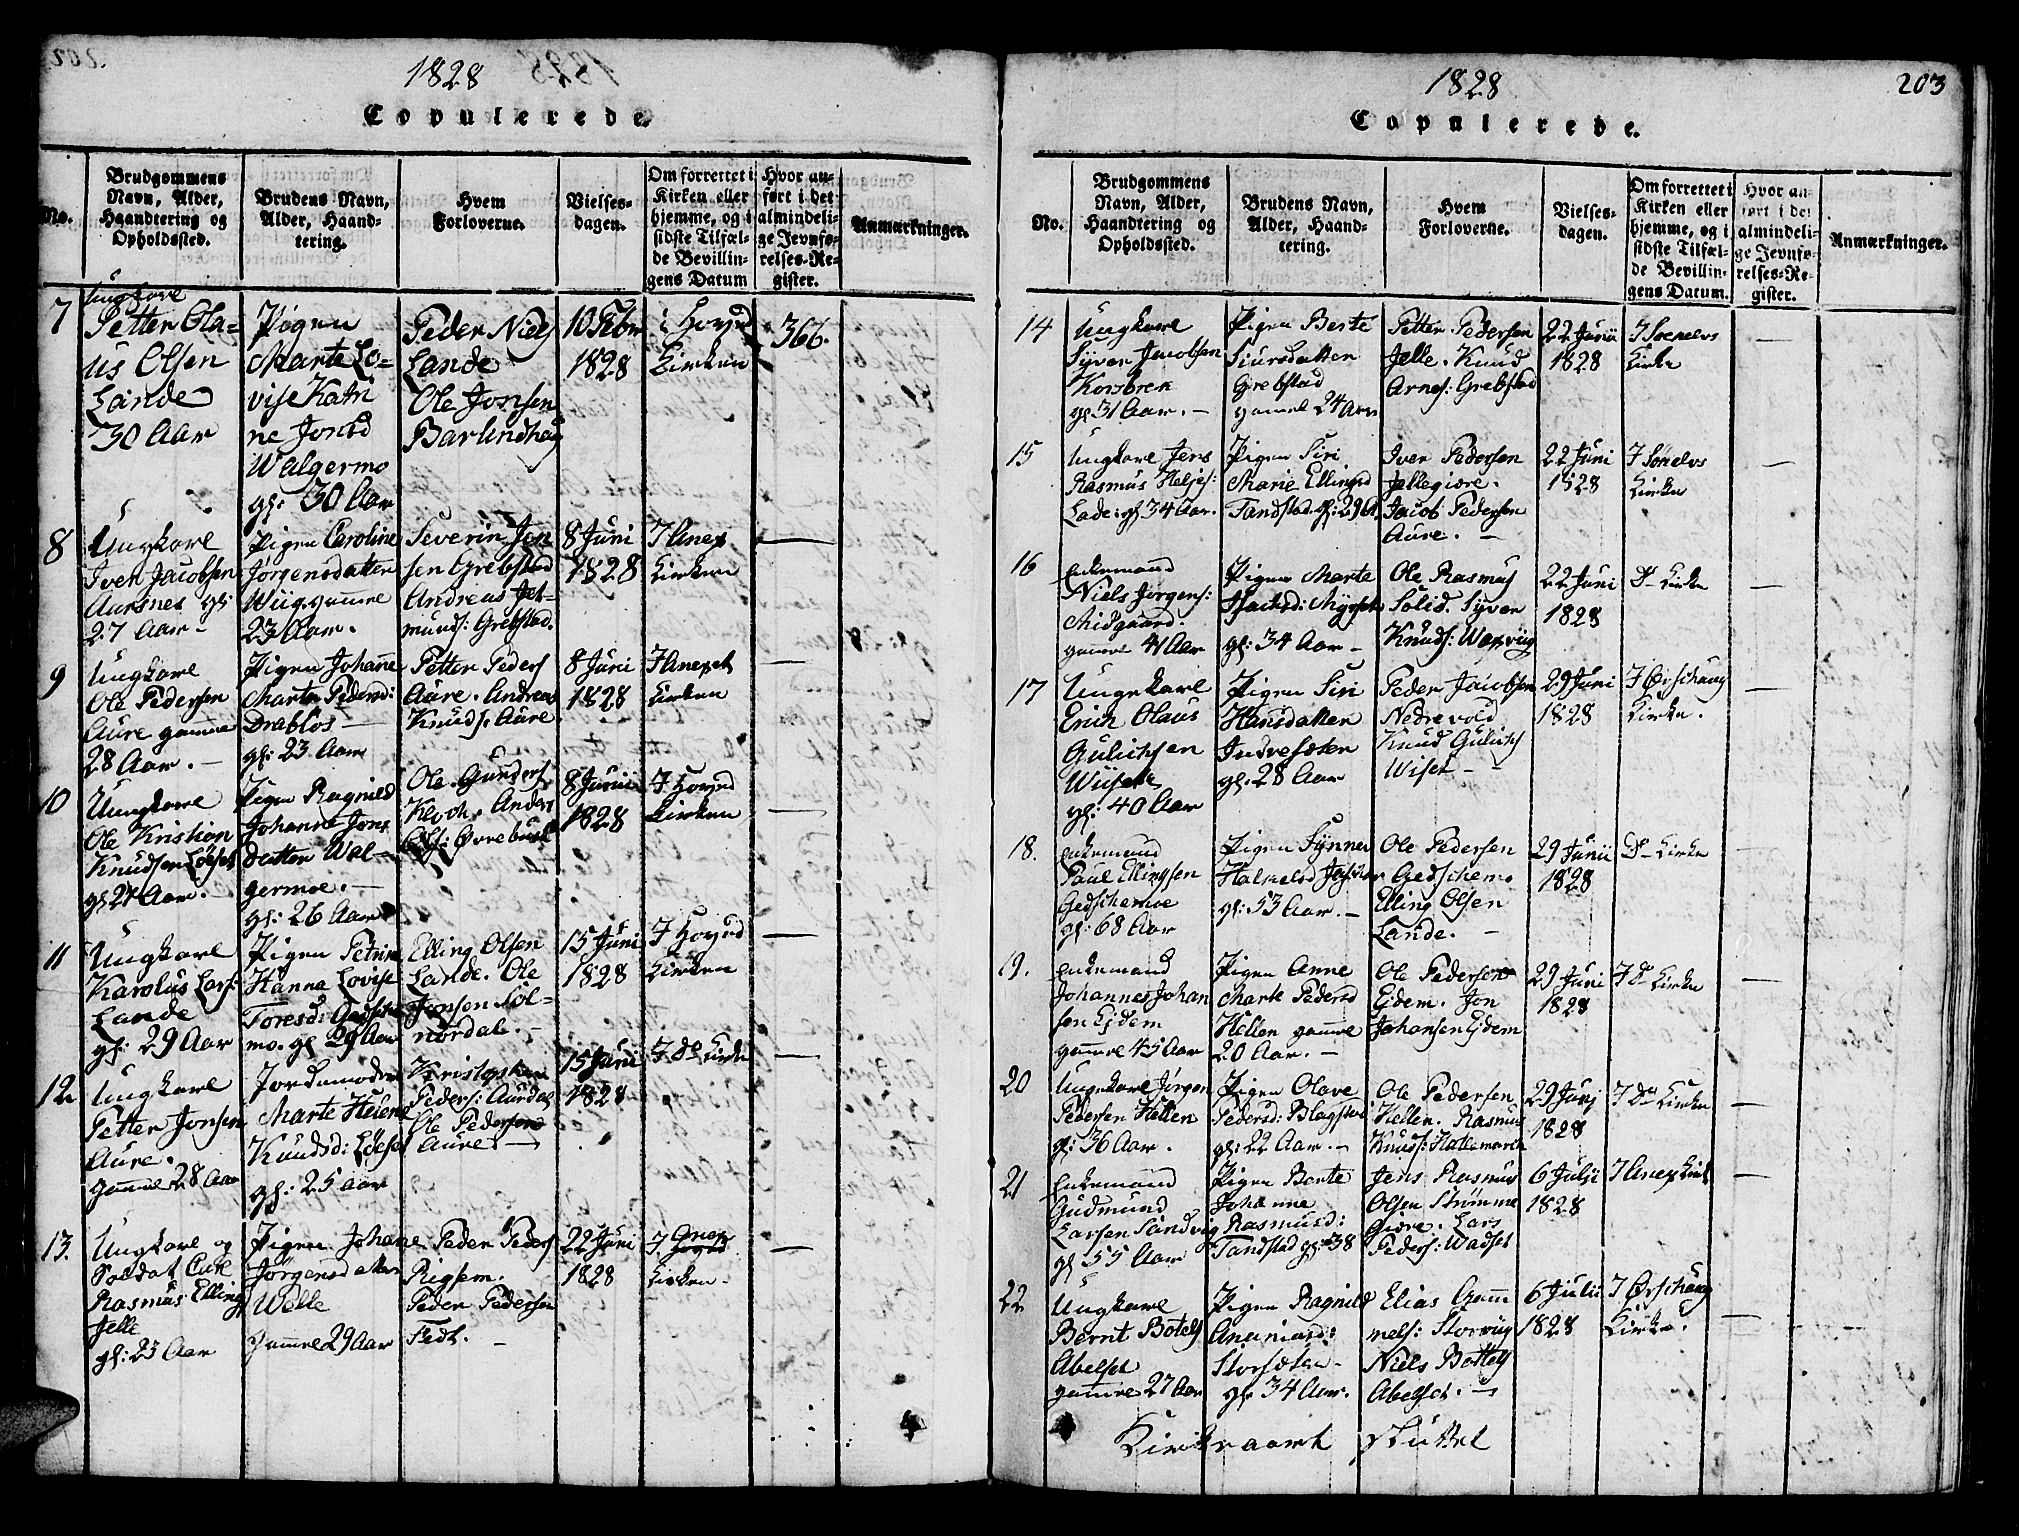 1828
Copulerede.
No.
Brudgommens
Navn, Alder,
Haandtering og
Opholdssted.
Brudens Navn,
Alder, Haand-
tering.
Hvem
Forloverne.
Vielses-
dagen.
Om forrettet i
Kirken eller
hjemme, og i
sidste Tilfæl-
de Bevillin-
gens Datum
Hvor an-
ført i det
almindeli-
ge Jevnfø-
relses-Re-
gister.
Anmærkninger.
7
Ungkarl
Petter Ola-
us Olsen
Lande
30 Aar
Pigen
Marte Lo-
vise Katri
ne Jonsd
Walgermo
gl: 30 Aar
Peder Niels
Lande
Ole Jonsen
Barlindhaug
10 Febr
1828
i Hovud
Kirken
366.
8
Ungkarl
Iver Jacobsen
Aursnes gl:
27 Aar -
Pigen Caroline
Jørgensdatter
Wiig gamle
23 Aar.
Severin Jen
sen Grebstad
Andreas Jet-
munds: Grebstad.
8 Juni
1828
I Anex
Kirken
9
Ungkarl
Ole Pedersen
Aure gamle
28 Aar. -
Pigen Johanne
Marte Pedersd:
Drabløs
gl: 23 Aar
Petter Peders
Aure. Andreas
Knuds: Aure
8 Juni
1828
I Anexet
Kirken
10
Ungkarl
Ole Kristian
Knudsen Løeset
gl 27 Aar. -
Pigen Ragnild
Johanne Jons
datter Wal-
germoe. -
gl: 26 Aar
Ole Gunders
Klock. Anders
Ols: Øvrebust
8 Junii
1828
I Hovud
Kirken
11
Ungkarl
Karolus Lars:
Lande
gl: 29 Aar
Pigen Petrine
Hanna Lovise
Toresd:
mo. gl 29 Aar
Elling Olsen
Lande. Ole
Jonsen Søl-
nørdale. -
15 Juni
1828
I Hovud
Kirken
12
Ungkarl
Petter Jonsen
Aure.
gamle 28 Aar
Jordemodre
Marte Helene
Knudsd: Løeset
gl: 25 Aar
Kristopher
Peders: Aurdal
Ole Pedersen
Aure. -
15 Juni
1828
I Do Kirke
13.
Ungkarl og
Soldat Carl
Rasmus Elling
Jelle
gl: 25 Aar
Pigen Johane
Jørgensdatter
Welle
gamel 29 Aar
Peder Peders
Rigsem.
Peder Pedersen
Fedt. -
22 Juni
1828
I Anex
Kirken
1828
203
Copulerede.
No.
Brudgommens
Navn, Alder,
Haandtering og
Opholdssted.
Brudens Navn,
Alder, Haand-
tering.
Hvem
Forloverne.
Vielses-
dagen.
Om forrettet i
Kirken eller
hjemme, og i
sidste Tilfæl-
de Bevillin-
gens Datum.
Hvor an-
ført i det
almindeli-
ge Jevnfø-
relses-Re-
gister.
Anmærkninger.
14
Ungkarl
Syver Jacobsen
Korsbrek
gl: 31 Aar. -
Pigen Berte
Siursdatter
Grebstad
gamel 24 Aar
Petter Pedersen
Jelle. Knud
Arnes: Grebstad
22 Junii
1828
I
Kirke
15
Ungkarl Jens
Rasmus Heljes:
Lade: gl 34 Aar.
Pigen Siri
Marie Ellingsd
Tandstad. gl: 29
Iver Pedersen
Jellegjære.
Jacob Pedersen
Aure. -
22 Juni
1828
I
Kirke
16
Enkemand
Niels Jørgens:
Midgaard.
gamle 41 Aar
Pigen Marte
Myrset
gl: 34 Aar -
Ole Rasmus
Solid. Syver
Knuds: Waxviig
22 Juni
1828
Do Kirke
17
Ungekarl
Erich Olaus
Gulichsen
Wiiset
gl: 40 Aar
Pigen Siri
Hansdatter
Indresæter
gl: 28 Aar
Peder Jacobsen
Nedrevold
Knud Gulichs
Wiset -
29 Juni
1828
I Ørschaug
Kirke.
18.
Enkemand
Paul Ellingsen
Gedschermoe
gl: 68 Aar
Pigen Synnev
Halkelsd
gl: 53 Aar. -
Ole Pedersen
Gedschermo
Elling Olsen
Lande. -
29 Junii
1828
Do Kirke
19.
Enkemand
Johannes Johan
sen Ejdem
gamle 45 Aar
Pigen Anne
Marte Pedersd
Hellen gamle
20 Aar. -
Ole Pedersen
Ejdem. Jon
Johansen Ejdem
29 Juni
1828
I Do Kirke
20
Ungekarl Jørgen
Pedersen Hellen
gl: 36 Aar.
Pigen Olave
Pedersd: Blagstad
gl: 22 Aar. -
Ole Pedersen
Hellen. Rasmus
Knuds: Hollemaren
29 Junj
1828
I Do Kirke
21
Enkemand
Gudmund
Larsen Sandvig
gl 55 Aar
Pigen Berte
Johanne
Rasmusd:
Tandstad gl: 38
Jens Rasmus
Olsen Strømme
Giære. Lars
Peders: Wadset
6 Julii
1828
I Anex Kirk
22
Ungkarl
Bernt Botels
Abelset
gamle 27 Aar
Pigen Ragnild
Ananiasd:
Storsæter
gl 34 Aar.
Elias Gam
mels: Storviig
Niels Bottels
Abelset. -
6 Julii
1828
I Ørschaug
Kirke.
Kirkeaaret sluttet